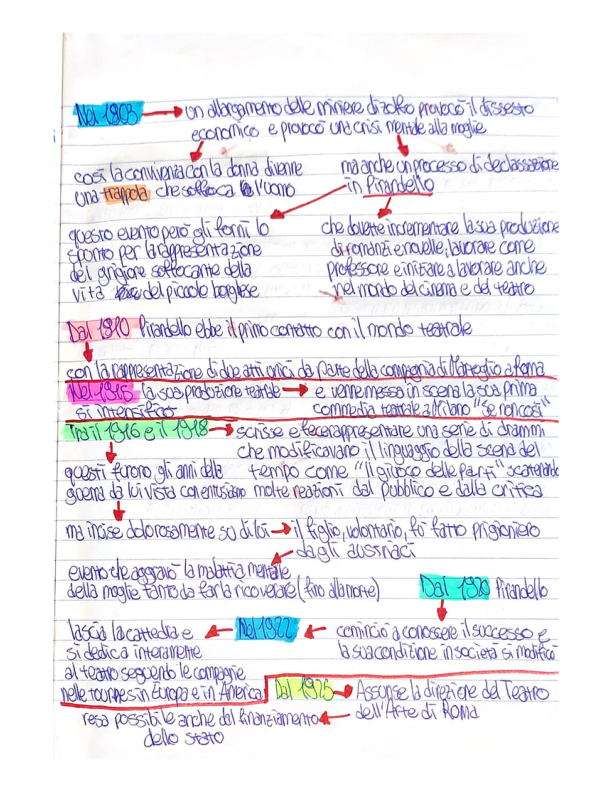 Nel 1903 → un allargamento delle miniere di zolfo provocò il dissesto
economico e provocò una crisi mentale alla moglie
così la convivenza con la donna divenne
una trappola che soffoca l'uomo
ma anche un processo di declassazione
in Pirandello
questo evento però gli fornì lo
spunto per la rappresentazione
del grigiore soffocante della
vita del piccolo borghese
che dovette incrementare la sua produzione
di romanzi e novelle, lavorare come
professore e iniziare a lavorare anche
nel mondo del cinema e del teatro
Dal 1910 Pirandello ebbe il primo contatto con il mondo teatrale
con la rappresentazione di due atti unici da parte della compagnia di Martoglio a Roma
Nel 1915 la sua produzione teatrale → e venne messo in scena la sua prima
si intensificò
commedia teatrale a Milano "se non così"
Tra il 1916 e il 1918 → scrisse e fece rappresentare una serie di drammi
che modificavano il linguaggio della scena del
tempo come "Il giuoco delle parti" scatenando
molte reazioni dal pubblico e dalla critica
questi furono gli anni della
guerra da lui vista con entusiasmo
ma incise dolorosamente su di lui → il figlio, volontario, fu fatto prigioniero
dagli austriaci
evento che aggravò la malattia mentale
della moglie tanto da farla ricoverare (fino alla morte)
Dal 1920 Pirandello
cominciò a conossere il successo e
la sua condizione in società si modificò
Nel 1922
lascia la cattedra e
si dedica interamente
al teatro seguendo le compagnie
nelle tournes in Europa e in America
Dal 1925 → Assunse la direzione del Teatro
dell'Arte di ROMA
resa possibile anche dal finanziamento
dello stato